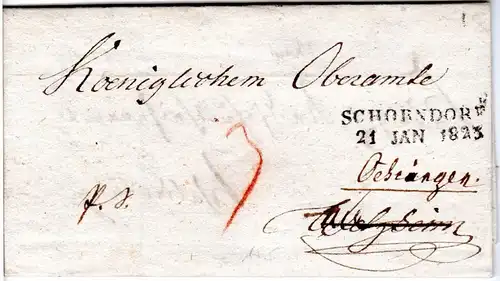 Koeniglichem Oberamte
SCHORNDORF
21 JAN 1823
Oehringen.
P. S.
Welzheim